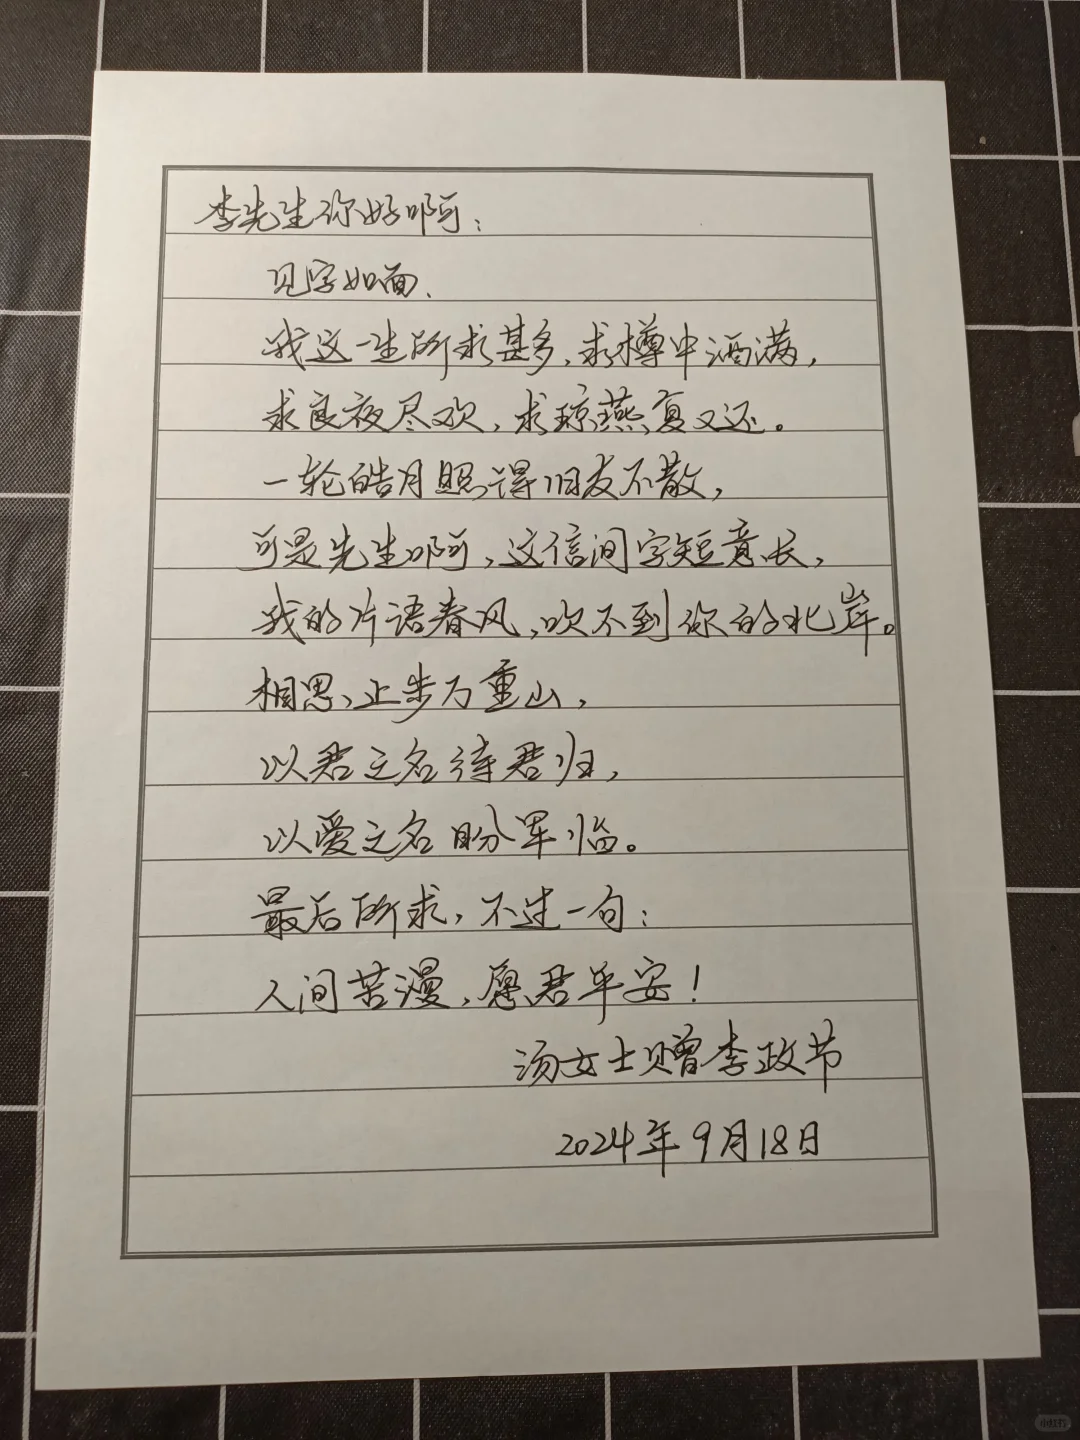 李先生你好啊：
见字如面、
我这一生所求甚多、求樽中酒满，
求良夜尽欢，求琼燕复又还。
一轮皓月照得旧友不散，
可是先生啊，这信间字短意长，
我的片语春风，吹不到你的北岸。
相思、止步万重山，
以君之名待君归，
以爱之名盼军临。
最后所求，不过一句：
人间苦漫，愿君平安！
汤女士赠李政节
2024年9月18日